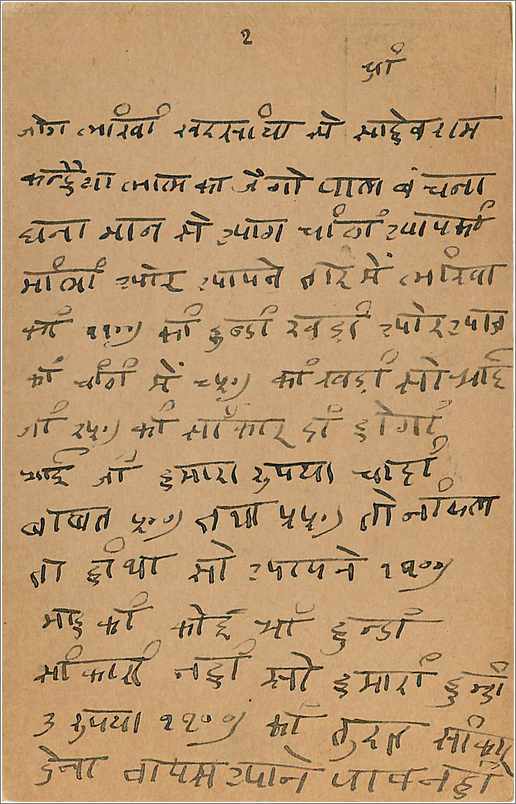 २
श्री
जोग लीखी खरसीया से साहेबराम
कन्हैया लाल का जै गोपाल बंचना
घना मान से आगे चीठी आपकी
मीली और आपने तार में लीखा
की ११००) की हुन्डी खड़ी और आप
की चीठी में ८५०) की खड़ी सो भाई
जी २५०) की सीकार दी होगी
भाई जी हमारा रुपया चाही
बाबत ५००) तथा ५५०) तो नीकल
ता ही था सो आपने ११००)
भाइ की कोई भी हुन्डी
सीकारी नहीं सो हमारी हुन्डी
रुपया ११००) की तुरत सीकार
देना वापस आने पावे नहीं